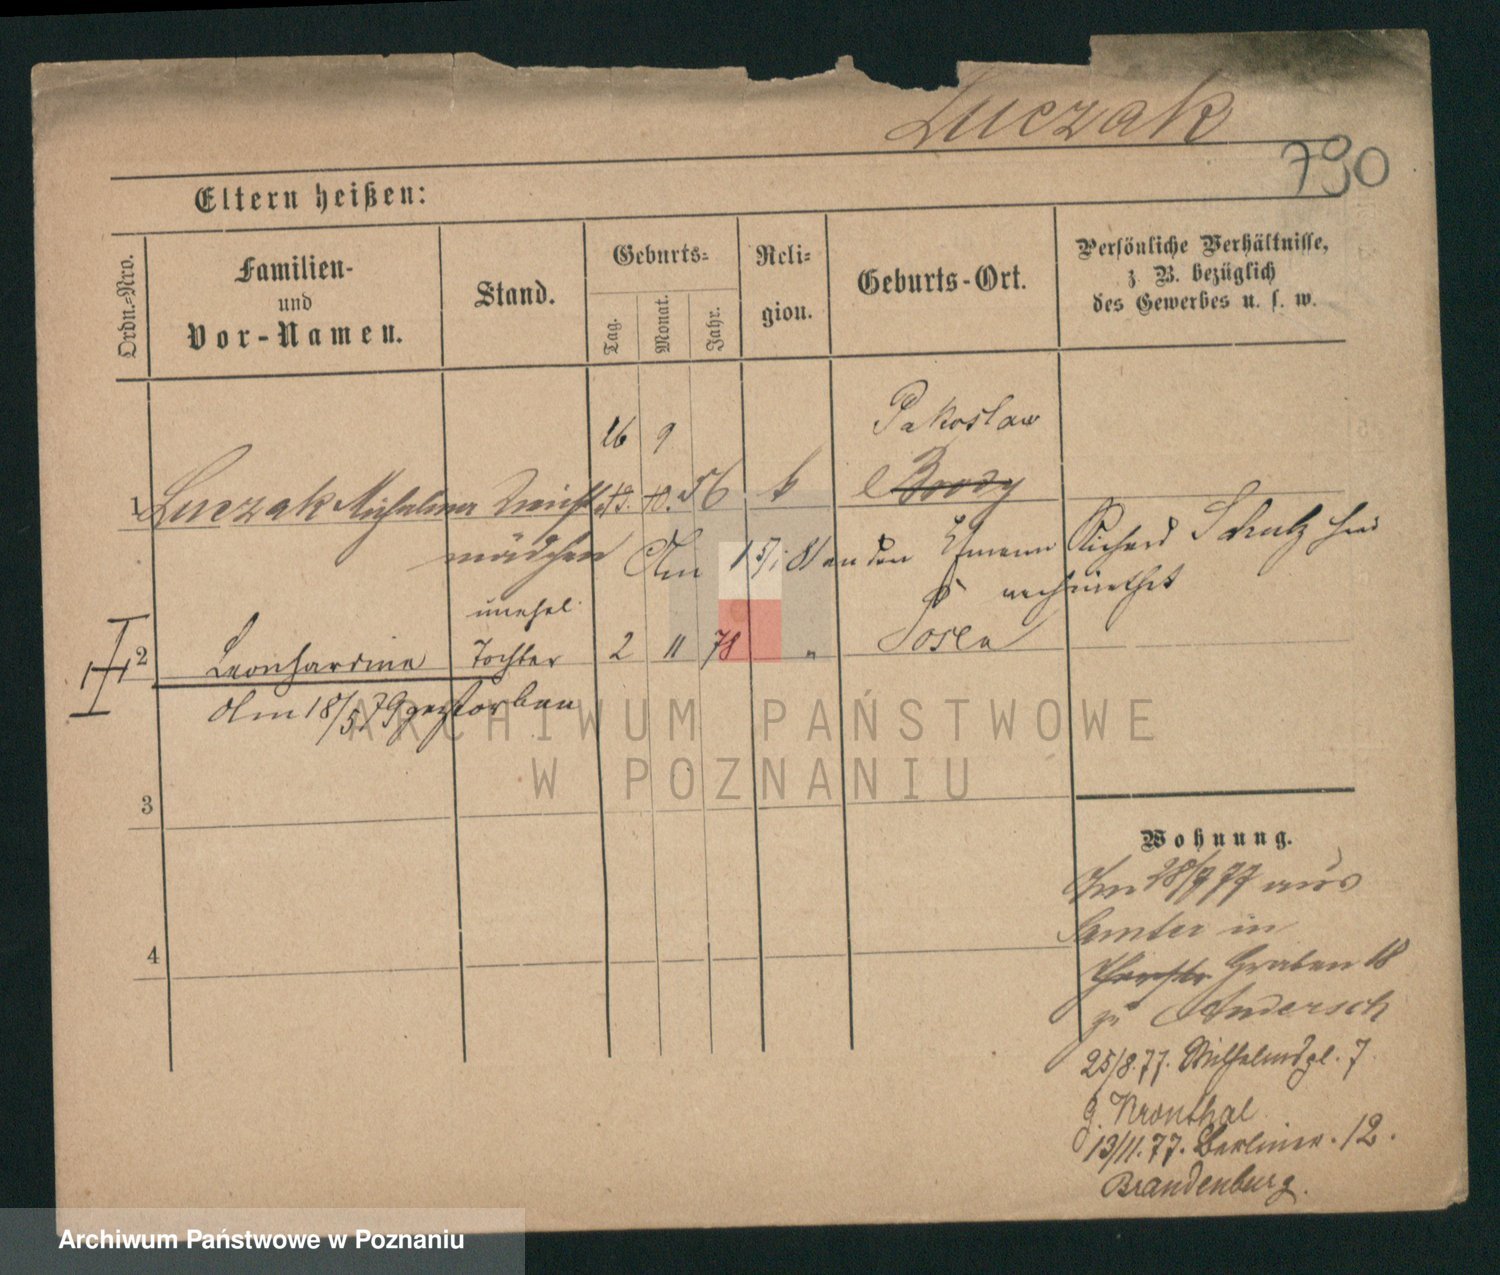 Luczak
790
Eltern heißen:
Ordn.-Nro.
Familien-
und
Vor-Namen.
Stand.
Geburts-
Tag.
Monat.
Jahr.
Reli-
gion.
Geburts-Ort.
Persönliche Verhältnisse,
z. B. bezüglich
des Gewerbes u. s. w.
16 9 Pakoslaw
1 Luczak Michalina Dienst 56 k
mädchen Am 15/1 81 an den Richard Schulz hier
verheirathet
unehel.
2 Leonhardine Tochter 2 11 78 " Posen
Am 18/5 79 gestorben
3
4
Wohnung.
Am 28/7 77 aus
Samter in
Graben 18
zu Andersch
25/8.77. Wilhelmspl. 7.
b. Kronthal
13/11.77. Berliner. 12.
Brandenburg.
ARCHIWUM PAŃSTWOWE
W POZNANIU
Archiwum Państwowe w Poznaniu